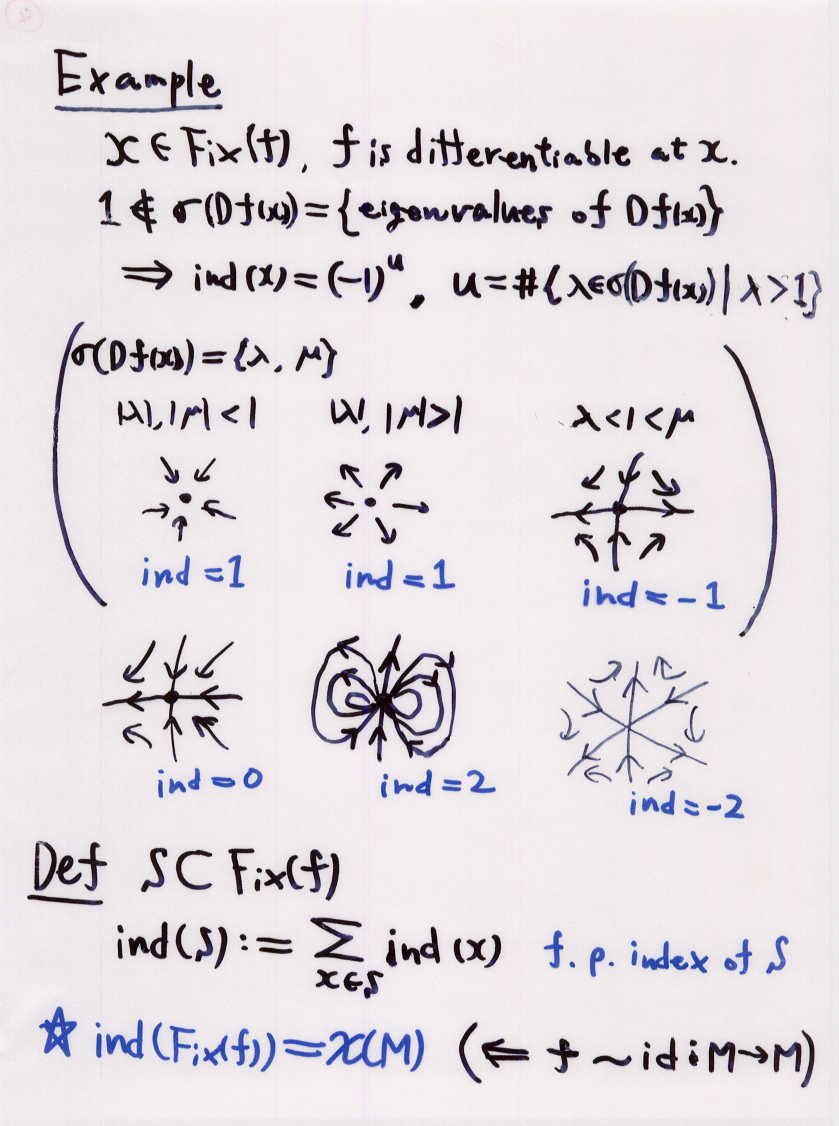 Example
x ∈ Fix(f), f is differentiable at x.
1 ∉ σ(Df(x)) = {eigenvalues of Df(x)}
⇒ ind(x) = (-1)^u, u = #{λ∈σ(Df(x)) | λ > 1}
σ(Df(x)) = {λ, μ}
|λ|, |μ| < 1 |λ|, |μ| > 1 λ < 1 < μ
ind = 1 ind = 1 ind = -1
ind = 0 ind = 2 ind = -2
Def S ⊂ Fix(f)
ind(S) := ∑_{x∈S} ind(x) f. p. index of S
☆ ind(Fix(f)) = χ(M) (⇐ f ~ id : M→M)